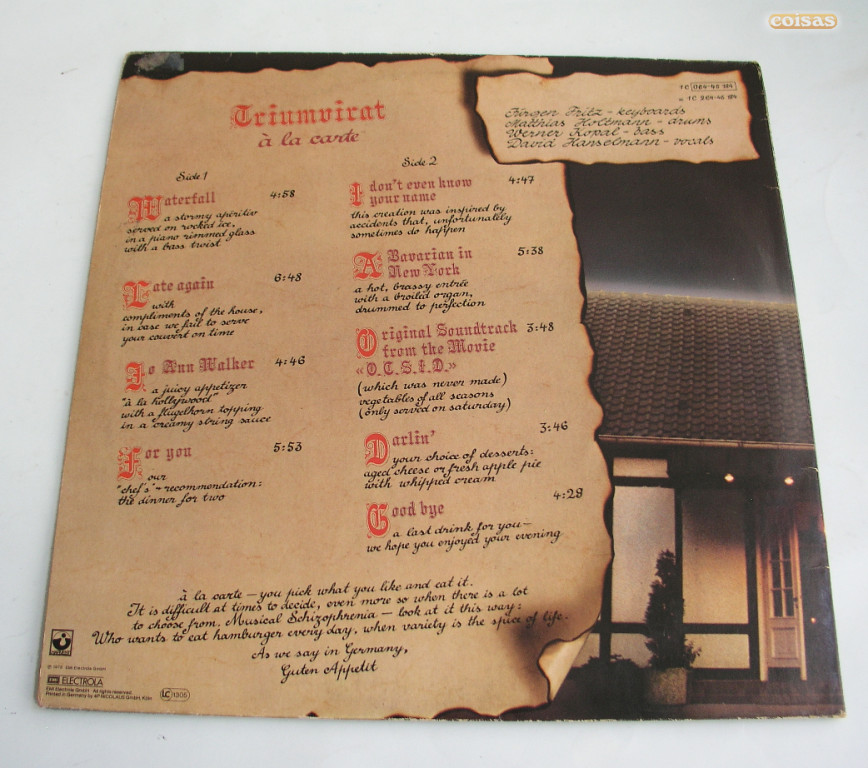 coisas
Triumvirat
à la carte
Jürgen Fritz - keyboards
Matthias Holtmann - drums
Werner Kopal - bass
David Hanselmann - vocals
Side 1
Waterfall 4:58
a stormy apéritiv
served on rocked ice,
in a piano rimmed glass
with a bass twist
Late again 6:48
with
compliments of the house,
in case we fail to serve
your couvert on time
Jo Ann Walker 4:46
a juicy appetizer
"à la hollywood"
with a flügelhorn topping
in a creamy string sauce
For you 5:53
our
"chef's"-recommendation:
the dinner for two
Side 2
I don't even know 4:47
your name
this creation was inspired by
accidents that, unfortunately
sometimes do happen
A Bavarian in 5:38
New York
a hot, brassy entrée
with a broiled organ,
drummed to perfection
Original Soundtrack 3:48
from the Movie
«O.C.S.I.D.»
(which was never made)
vegetables of all seasons
(only served on saturday)
Darlin' 3:46
your choice of desserts:
aged cheese or fresh apple pie
with whipped cream
Good bye 4:28
a last drink for you—
we hope you enjoyed your evening
à la carte — you pick what you like and eat it.
It is difficult at times to decide, even more so when there is a lot
to choose from. Musical Schizophrenia — look at it this way:
Who wants to eat hamburger every day, when variety is the spice of life.
As we say in Germany,
Guten Appetit
EMI ELECTROLA
EMI Electrola GmbH · All rights reserved.
LC 1305